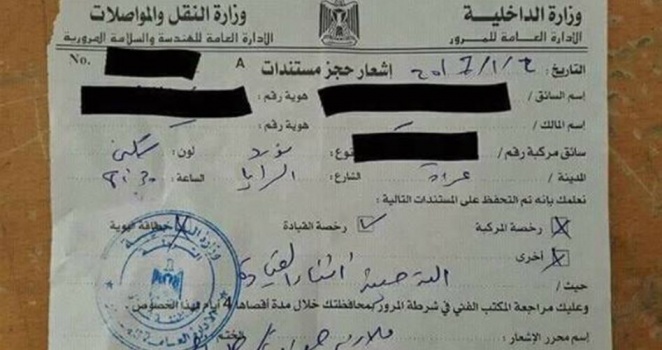 وزارة الداخلية
الإدارة العامة للمرور
وزارة النقل والمواصلات
الإدارة العامة للهندسة والسلامة المرورية
No.
A
إشعار حجز مستندات
التاريخ: 2017/1/2
إسم السائق /
هوية رقم :
إسم المالك /
هوية رقم :
سائق مركبة رقم /
نوع:
فورد
لون: سكني
المدينة / غزة
الشارع: السرايا
الساعة: 8:30
نعلمك بإنه تم التحفظ على المستندات التالية :
رخصة المركبة
رخصة القيادة
بطاقة الهوية
أخرى
حيث / أثناء القيادة
وعليك مراجعة المكتب الفني في شرطة المرور بمحافظتك خلال مدة أقصاها 4 أيام بهذا الخصوص.
إسم محرر الإشعار /
الختم